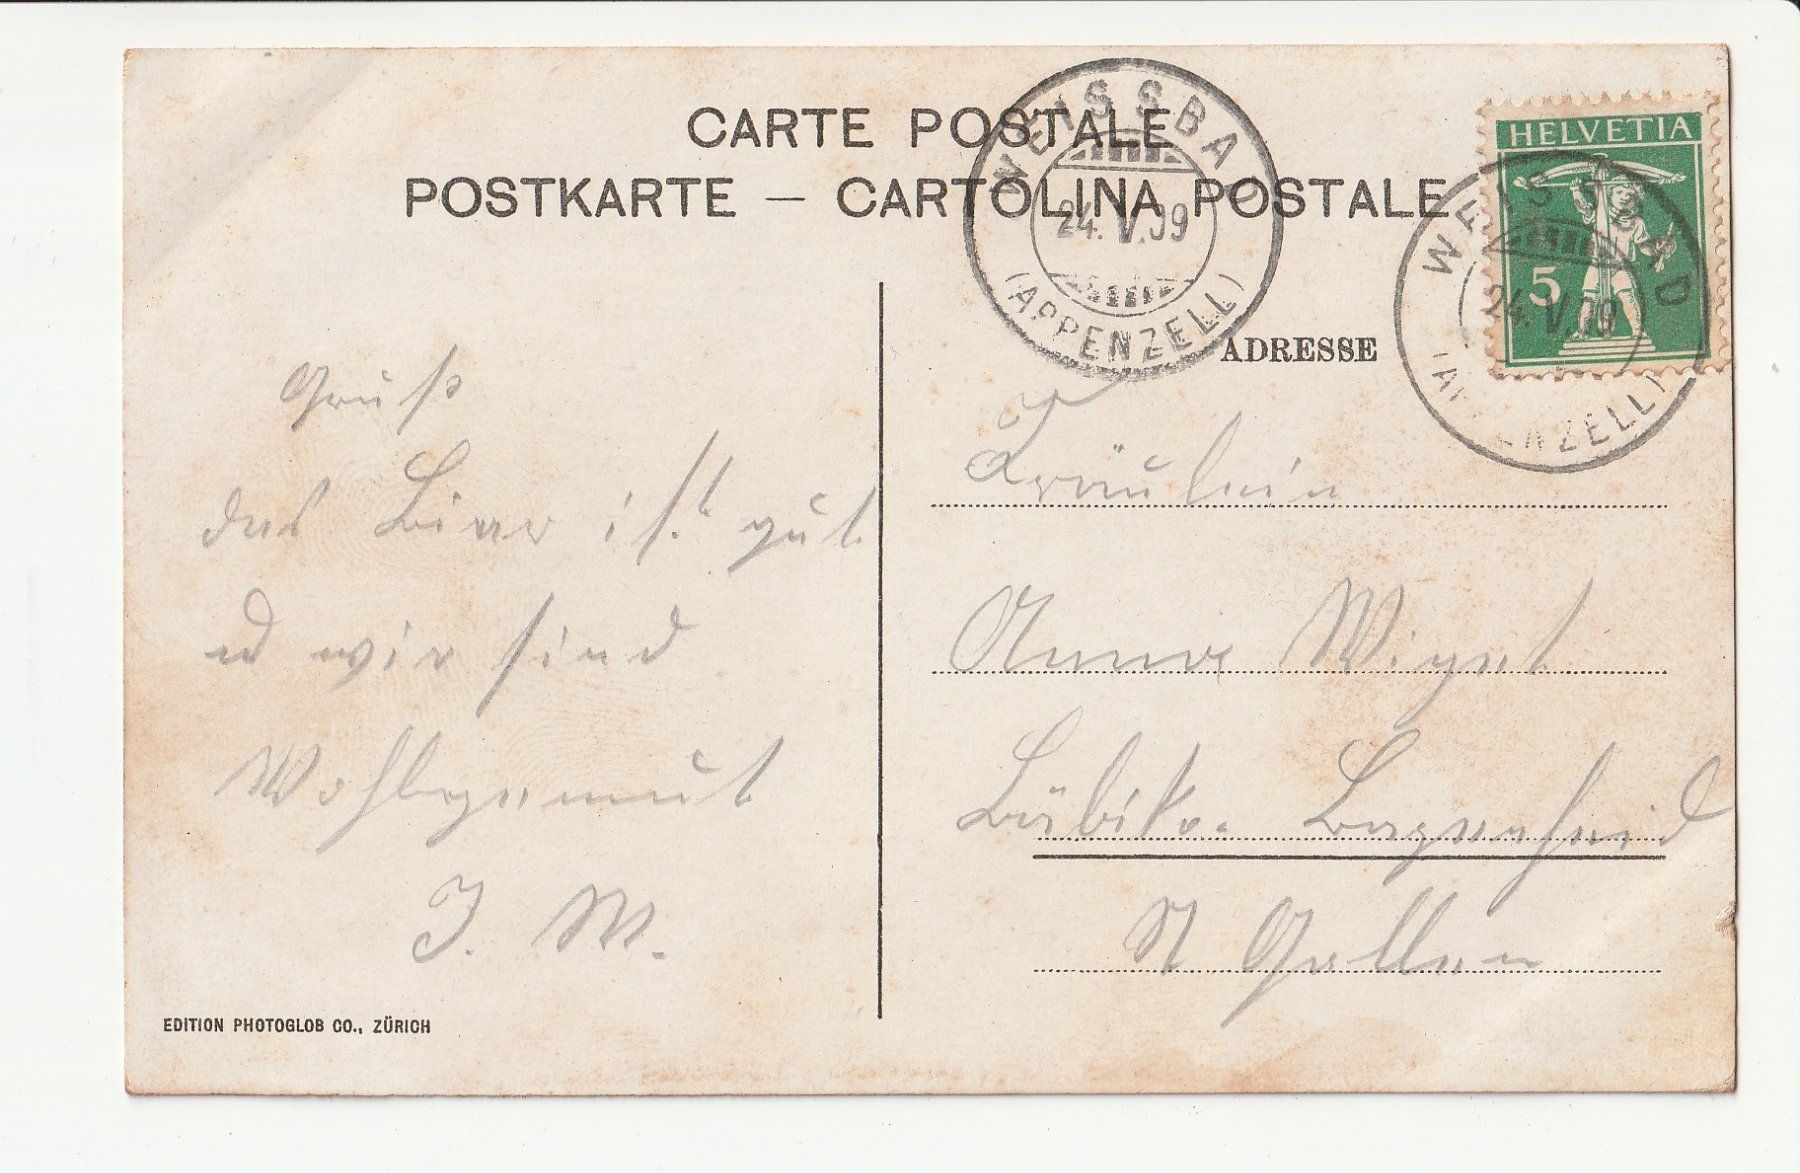 CARTE POSTALE
POSTKARTE — CARTOLINA POSTALE
WEISSBAD
24.V.09
(APPENZELL)
HELVETIA
5
WEISSBAD
24.V.09
(APPENZELL)
ADRESSE
Gruß
das Bier ist gut
und wir sind
Wohlgemut
J. W.
Fräulein
Anna Wiget
Bazenheid
St Gallen
EDITION PHOTOGLOB CO., ZÜRICH